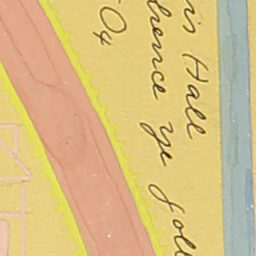 is Hall
hence ye foll
-04